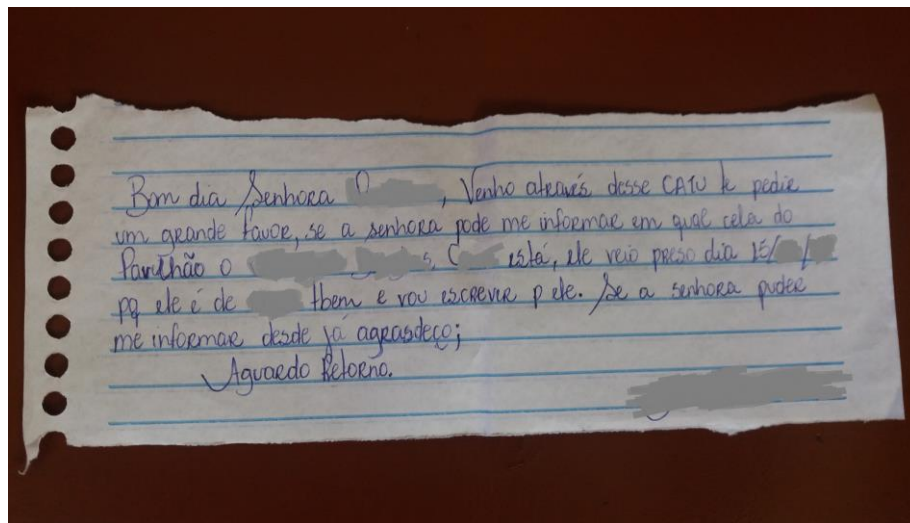 Bom dia Senhora O , Venho através desse CATU te pedir
um grande favor, se a senhora pode me informar em qual cela do
Pavilhão o está, ele veio preso dia 15/ /
pq ele é de tbem e vou escrever p ele. Se a senhora puder
me informar desde já agrasdeço;
Aguardo Retorno.